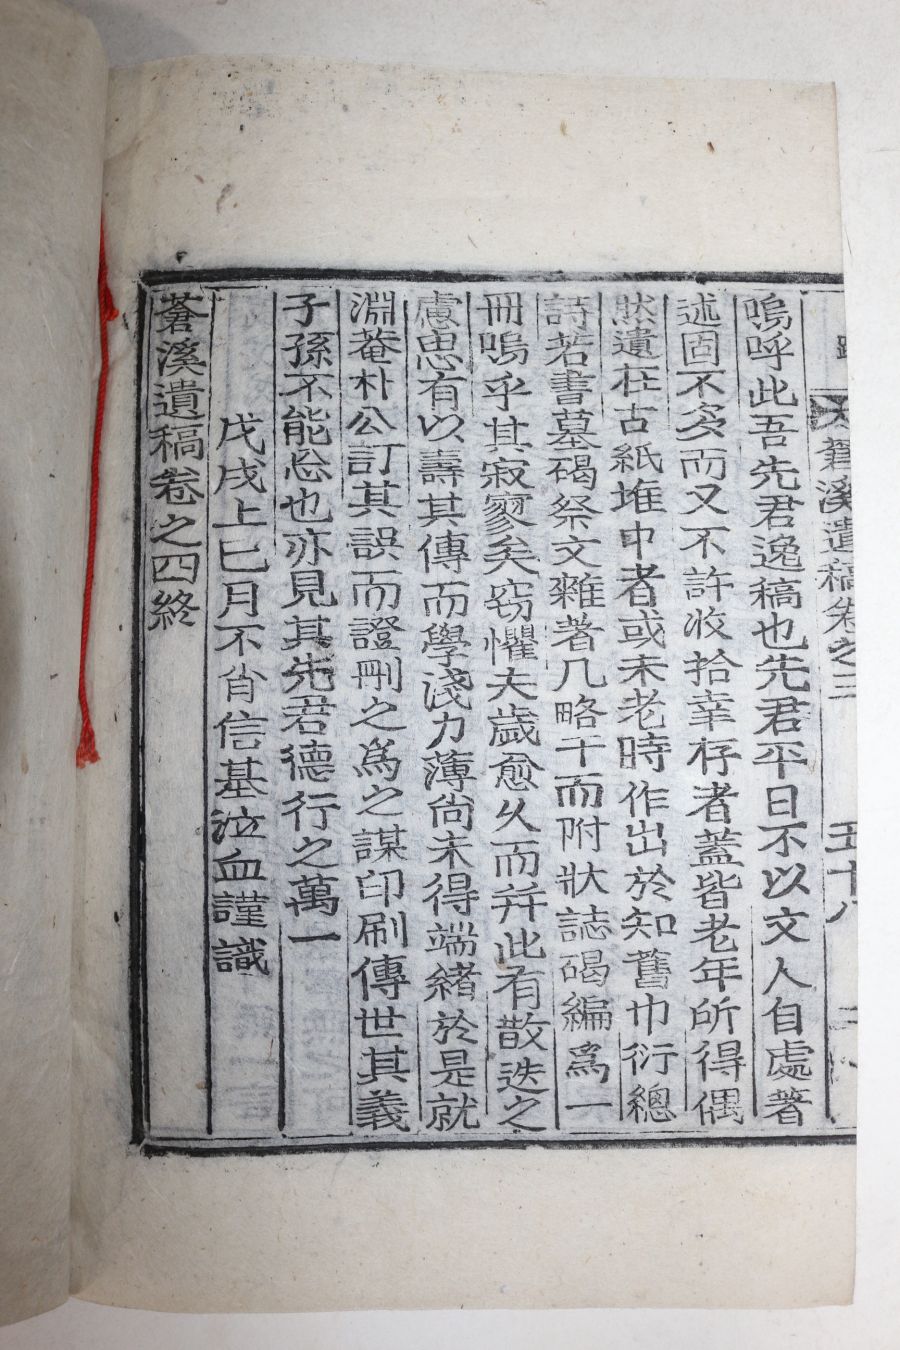 蒼溪遺稿卷之三 五十八
嗚呼此吾先君逸稿也先君平日不以文人自處著
述固不多而又不許收拾幸存者蓋皆老年所得偶
然遺在古紙堆中者或未老時作出於知舊巾衍總
詩若書墓碣祭文雜著凡略干而附狀誌碣編爲一
冊嗚乎其寂寥矣窃懼夫歲愈久而幷此有散迭之
慮思有以壽其傳而學淺力薄尙未得端緖於是就
淵菴朴公訂其誤而證刪之爲之謀印刷傳世其義
子孫不能忘也亦見其先君德行之萬一
戊戌上巳月不肖信基泣血謹識
蒼溪遺稿卷之四終